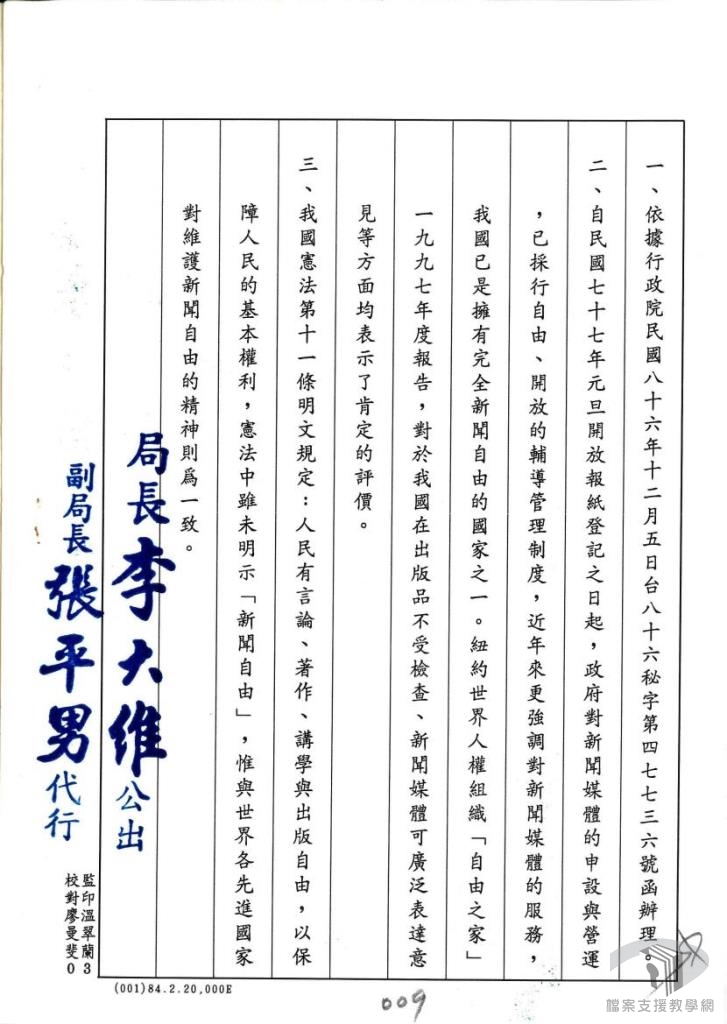 一、依據行政院民國八十六年十二月五日台八十六秘字第四七七三六號函辦理。
二、自民國七十七年元旦開放報紙登記之日起，政府對新聞媒體的申設與營運
，已採行自由、開放的輔導管理制度，近年來更強調對新聞媒體的服務，
我國已是擁有完全新聞自由的國家之一。紐約世界人權組織「自由之家」
一九九七年度報告，對於我國在出版品不受檢查、新聞媒體可廣泛表達意
見等方面均表示了肯定的評價。
三、我國憲法第十一條明文規定：人民有言論、著作、講學與出版自由，以保
障人民的基本權利，憲法中雖未明示「新聞自由」，惟與世界各先進國家
對維護新聞自由的精神則為一致。
局長李大維公出
副局長張平男代行
監印溫翠蘭3
校對廖曼斐0
(001)84.2.20,000E
009
檔案支援教學網